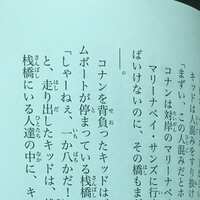 キッドは人混みをすり抜け
「まずい、この人混みだとホ
コナンは対岸のマリーナベ
マリーナベイ・サンズに行
ばいけないのに、その橋もま
――。
コナンを背負ったキッドは
ムボートが停まっている桟橋
「しゃーねえ、一か八かだ！
と、走り出したキッドは、
桟橋にいる人達の中に、キ